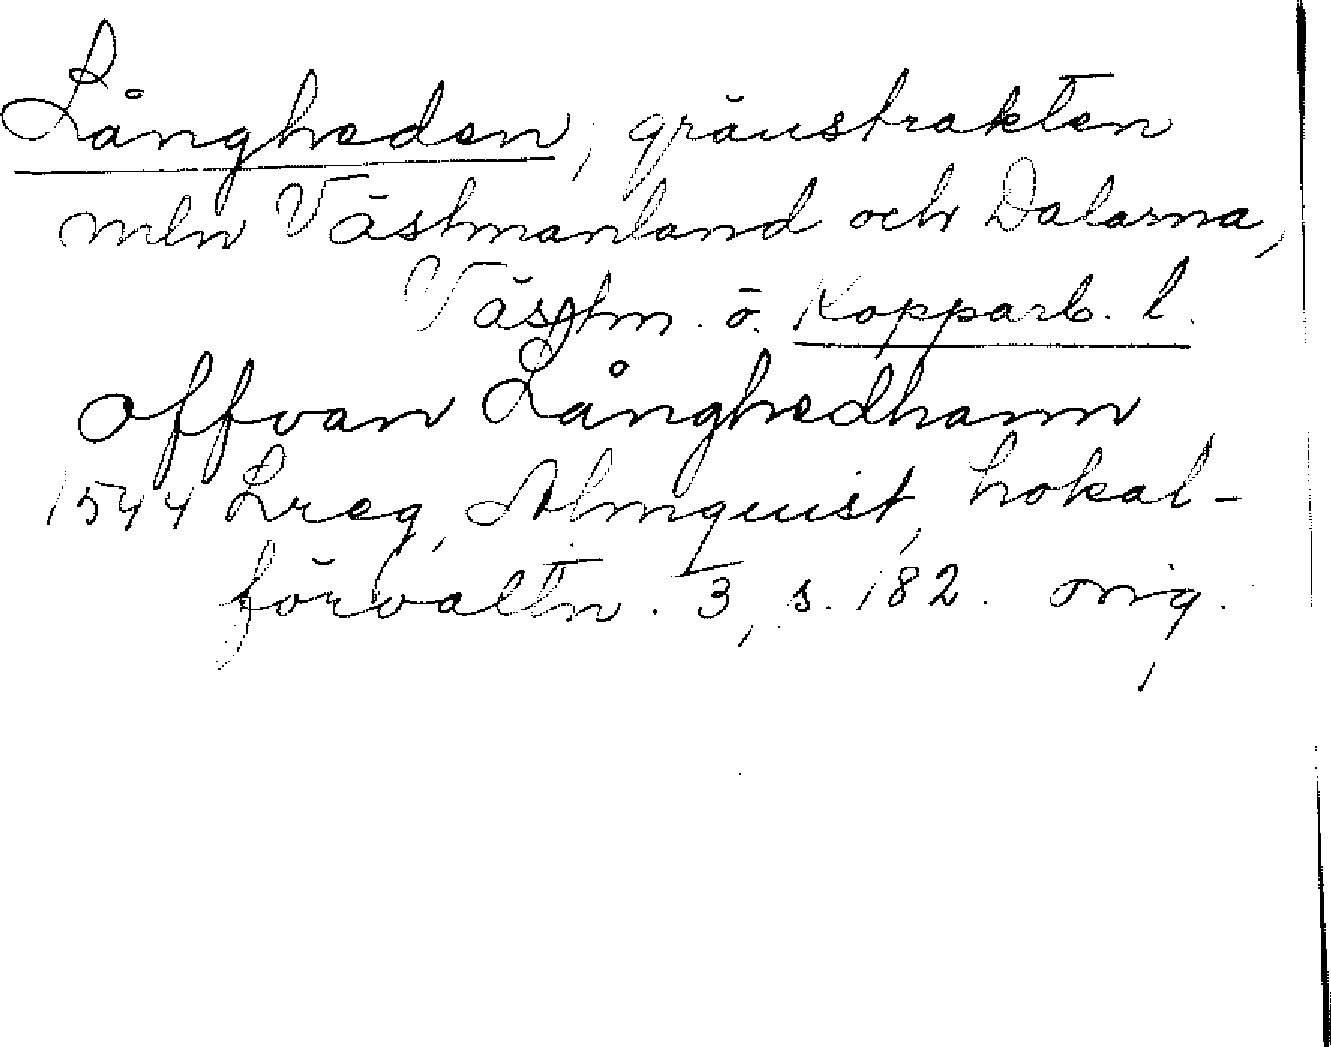 Långheden, gränstrakten
mln Västmanland och Dalarna,
Västm. o. Kopparb. l.
offvan Långhedhann
1544 Lreg, Almquist, Lokal-
förvaltn. 3, s. 182. orig.